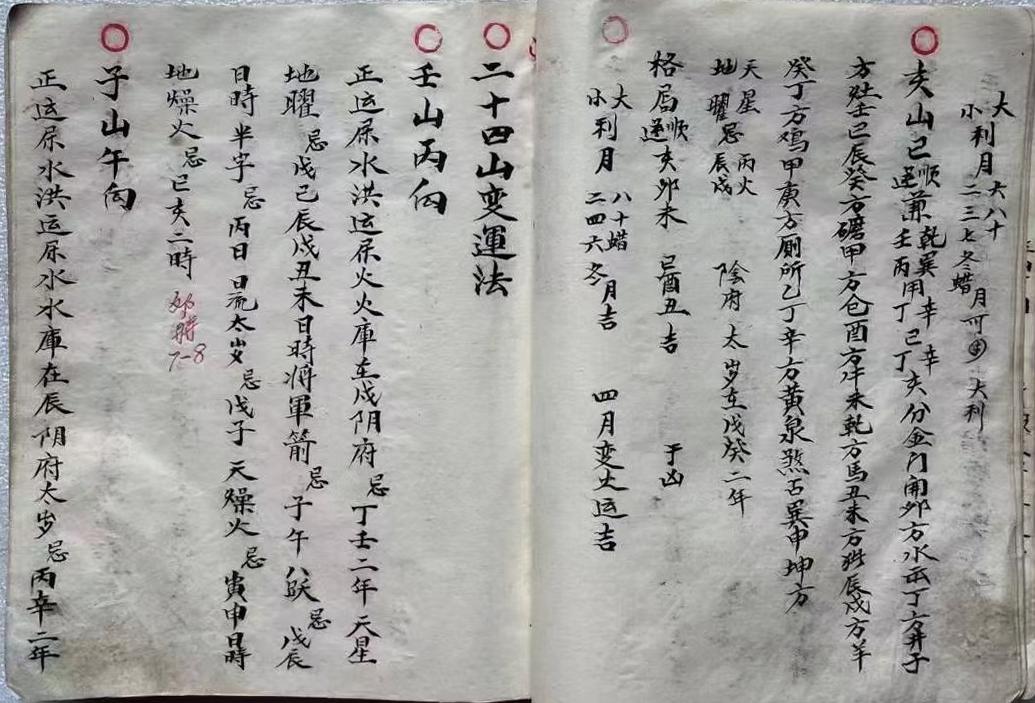 大利月 六八十
小利月 二三七冬蜡月可 大利
亥山巳 順逆 兼 乾巽 壬丙 用 辛丁 巳 辛丁 亥分金门開卯方水缶丁方井子
方灶壬巳辰癸方礳甲方仓酉方牛未乾方馬丑未方猪辰戍方羊
癸丁方鸡甲庚方厠所乙丁辛方黄泉煞占巽申坤方
天星 丙火
地曜忌辰戍 陰府太岁在戊癸二年
格局 順逆 亥卯未 巳酉丑吉 于凶
大利月 八十蜡
小利月 二四六冬月吉 四月变火运吉
二十四山变運法
壬山丙向
正运属水洪运属火火庫在戍阴府忌丁壬二年天星
地曜忌戊己辰戍丑未日時将軍箭忌子午八䀢忌戊辰
日時半字忌丙日日流太岁忌戊子天燥火忌寅申日時
地燥火忌巳亥二時
子山午向
正运属水洪运属水水庫在辰阴府太岁忌丙辛二年